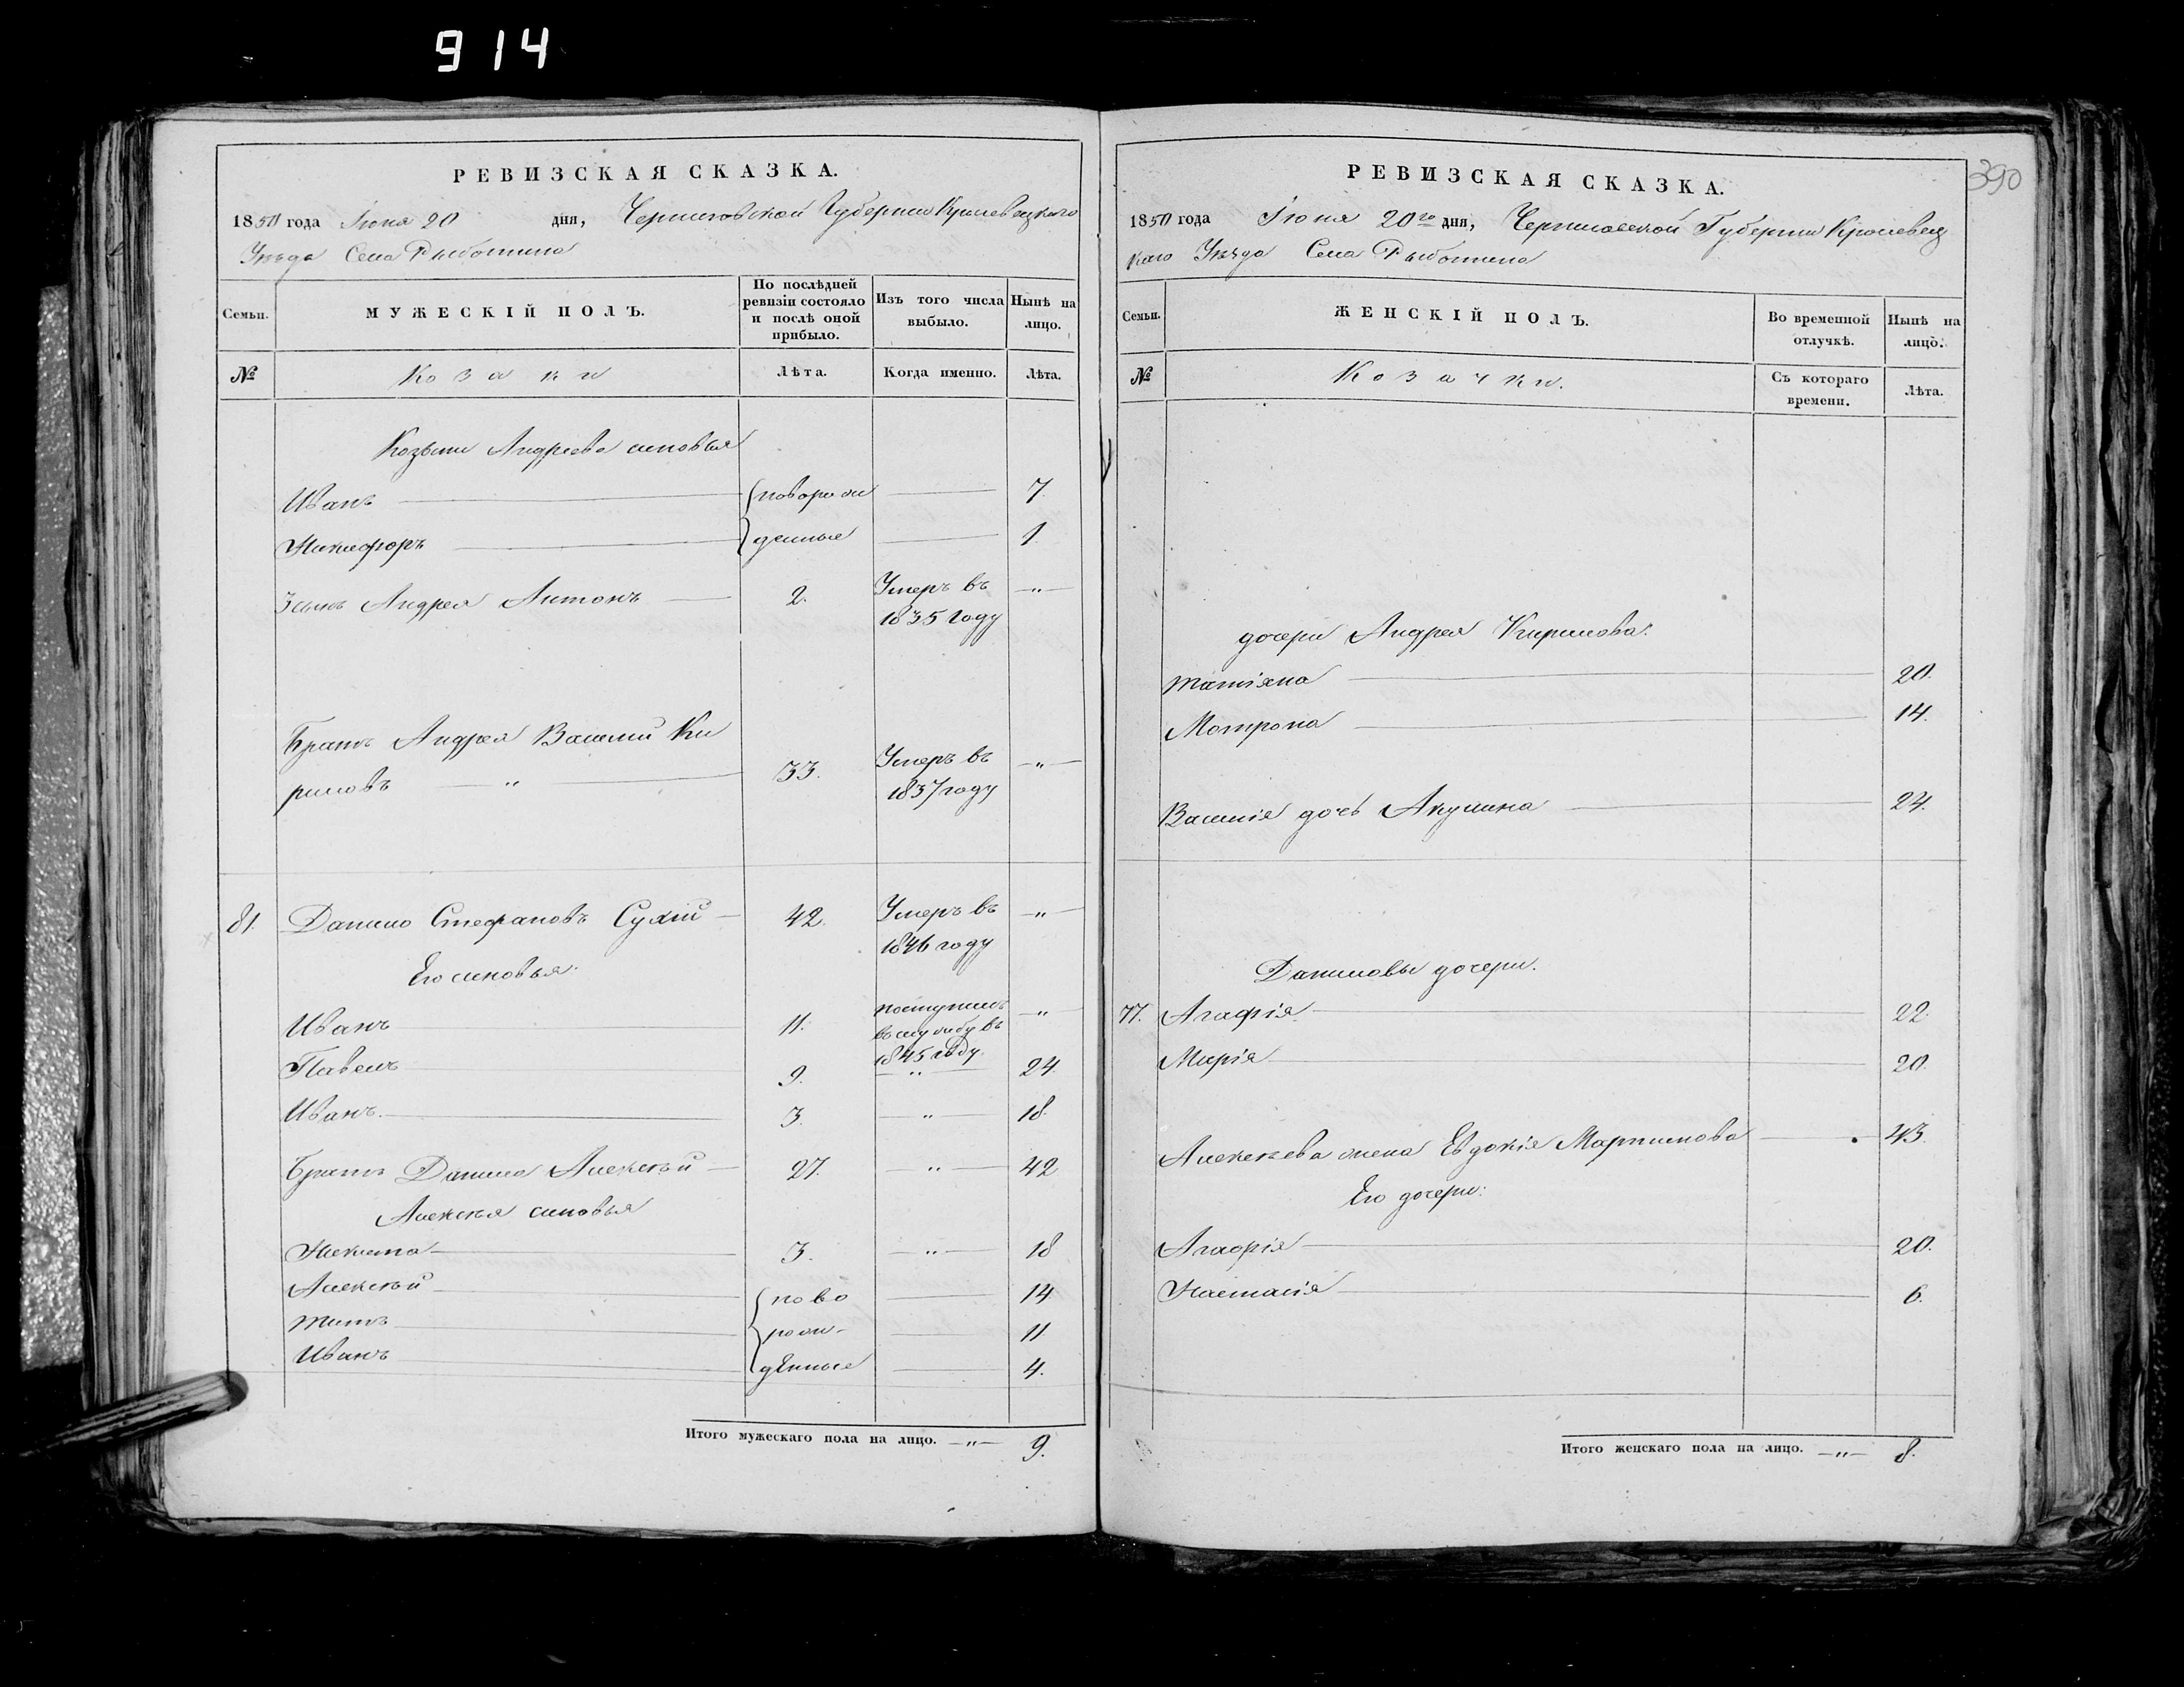 914
РЕВИЗСКАЯ СКАЗКА.
1850 года Іюня 20 дня, Черниговской Губерніи Кролевецкаго
Уѣзда Села Рыботина
Семьи.
МУЖЕСКІЙ ПОЛЪ.
По послѣдней ревизіи состояло и послѣ оной прибыло.
Изъ того числа выбыло.
Нынѣ на лицо.
№
Козаки
Лѣта.
Когда именно.
Лѣта.
Козьми Андреева синовья
Иванъ новорож 7.
Никифоръ денные 1.
3 сынъ Андрея Антонъ 2. Умеръ въ „
1835 году
Братъ Андрея Василий Ки
риловъ „ 33. Умеръ въ „
1837 году
81. Данило Стефановъ Сухій 42. Умеръ въ „
1846 году
Его синовья.
Иванъ 11. поступилъ „
въ службу въ
1845 году.
Павелъ 9. „ 24.
Иванъ. 3. „ 18.
Братъ Данила Алексѣй 27. „ 42
Алексѣя синовья
Никита 3. „ 18
Алексѣй ново 14
Титъ рож- 11
Иванъ денные 4.
Итого мужескаго пола на лицо. „ 9.
390
РЕВИЗСКАЯ СКАЗКА.
1850 года Іюня 20го дня, Черниговской Губерніи Кролевец
каго Уѣзда Села Рыботина
Семьи.
ЖЕНСКІЙ ПОЛЪ.
Во временной отлучкѣ.
Нынѣ на лицо.
№
Козачки.
Съ котораго времени.
Лѣта.
дочери Андрея Кирилова:
Татіяна 20.
Мотрона 14.
Василія дочь Акулина 24.
Даниловы дочери.
77. Агафія 22.
Марія 20.
Алексѣева жена Евдокія Мартинова 43.
Его дочери:
Агафія 20.
Настасія 6.
Итого женскаго пола на лицо. „ 8.